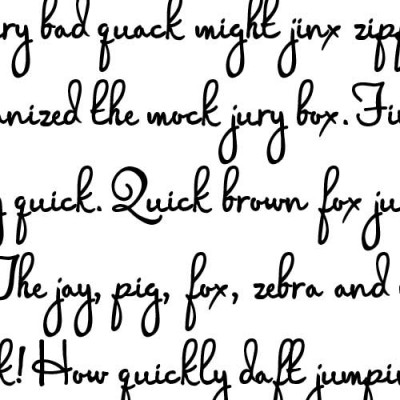 ry bad quack might jinx zipp
anized the mock jury box. Fi
quick. Quick brown fox ju
The jay, pig, fox, zebra and
k! How quickly daft jumpi